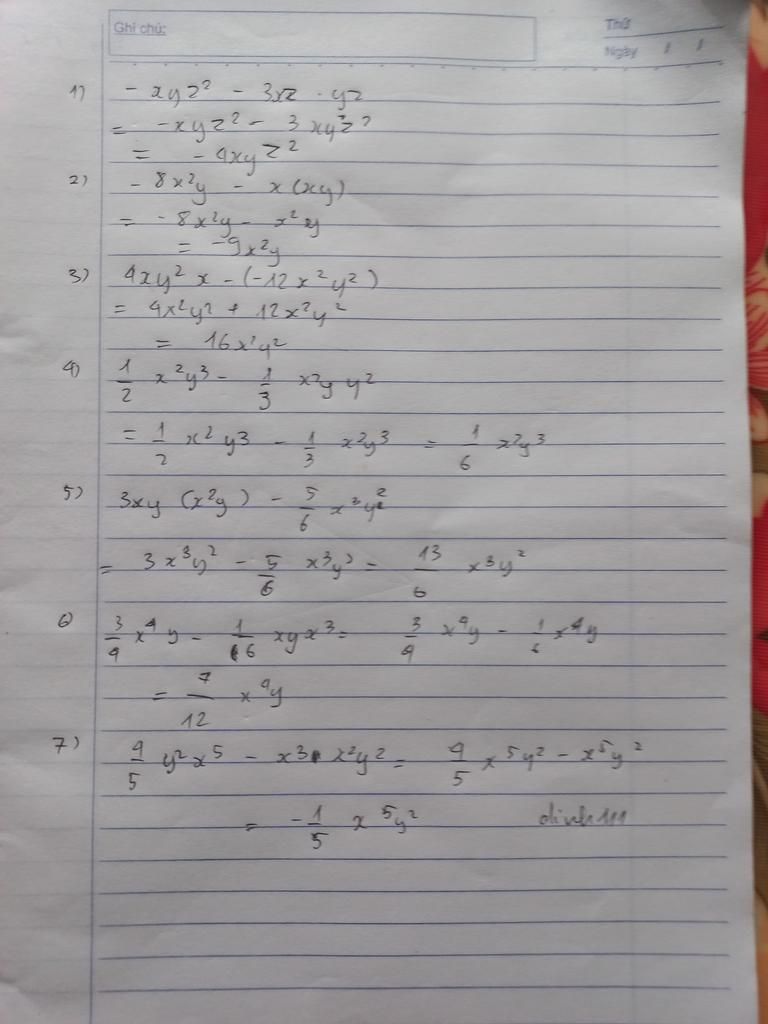 Ghi chú:
Thứ
Ngày / /
1) - xyz² - 3xz · yz
= -xyz² - 3xyz²
= - 4xyz²
2) - 8x²y - x(xy)
= - 8x²y - x²y
= -9x²y
3) 4xy² x - (-12x²y²)
= 4x²y² + 12x²y²
= 16x²y²
4) 1/2 x²y³ - 1/3 x²y y²
= 1/2 x²y³ - 1/3 x²y³ = 1/6 x²y³
5) 3xy (x²y) - 5/6 x³y²
= 3x³y² - 5/6 x³y² = 13/6 x³y²
6) 3/4 x⁴y - 1/6 xyx³ = 3/4 x⁴y - 1/6 x⁴y
= 7/12 x⁴y
7) 4/5 y²x⁵ - x³ · x²y² = 4/5 x⁵y² - x⁵y²
= -1/5 x⁵y² dinh111